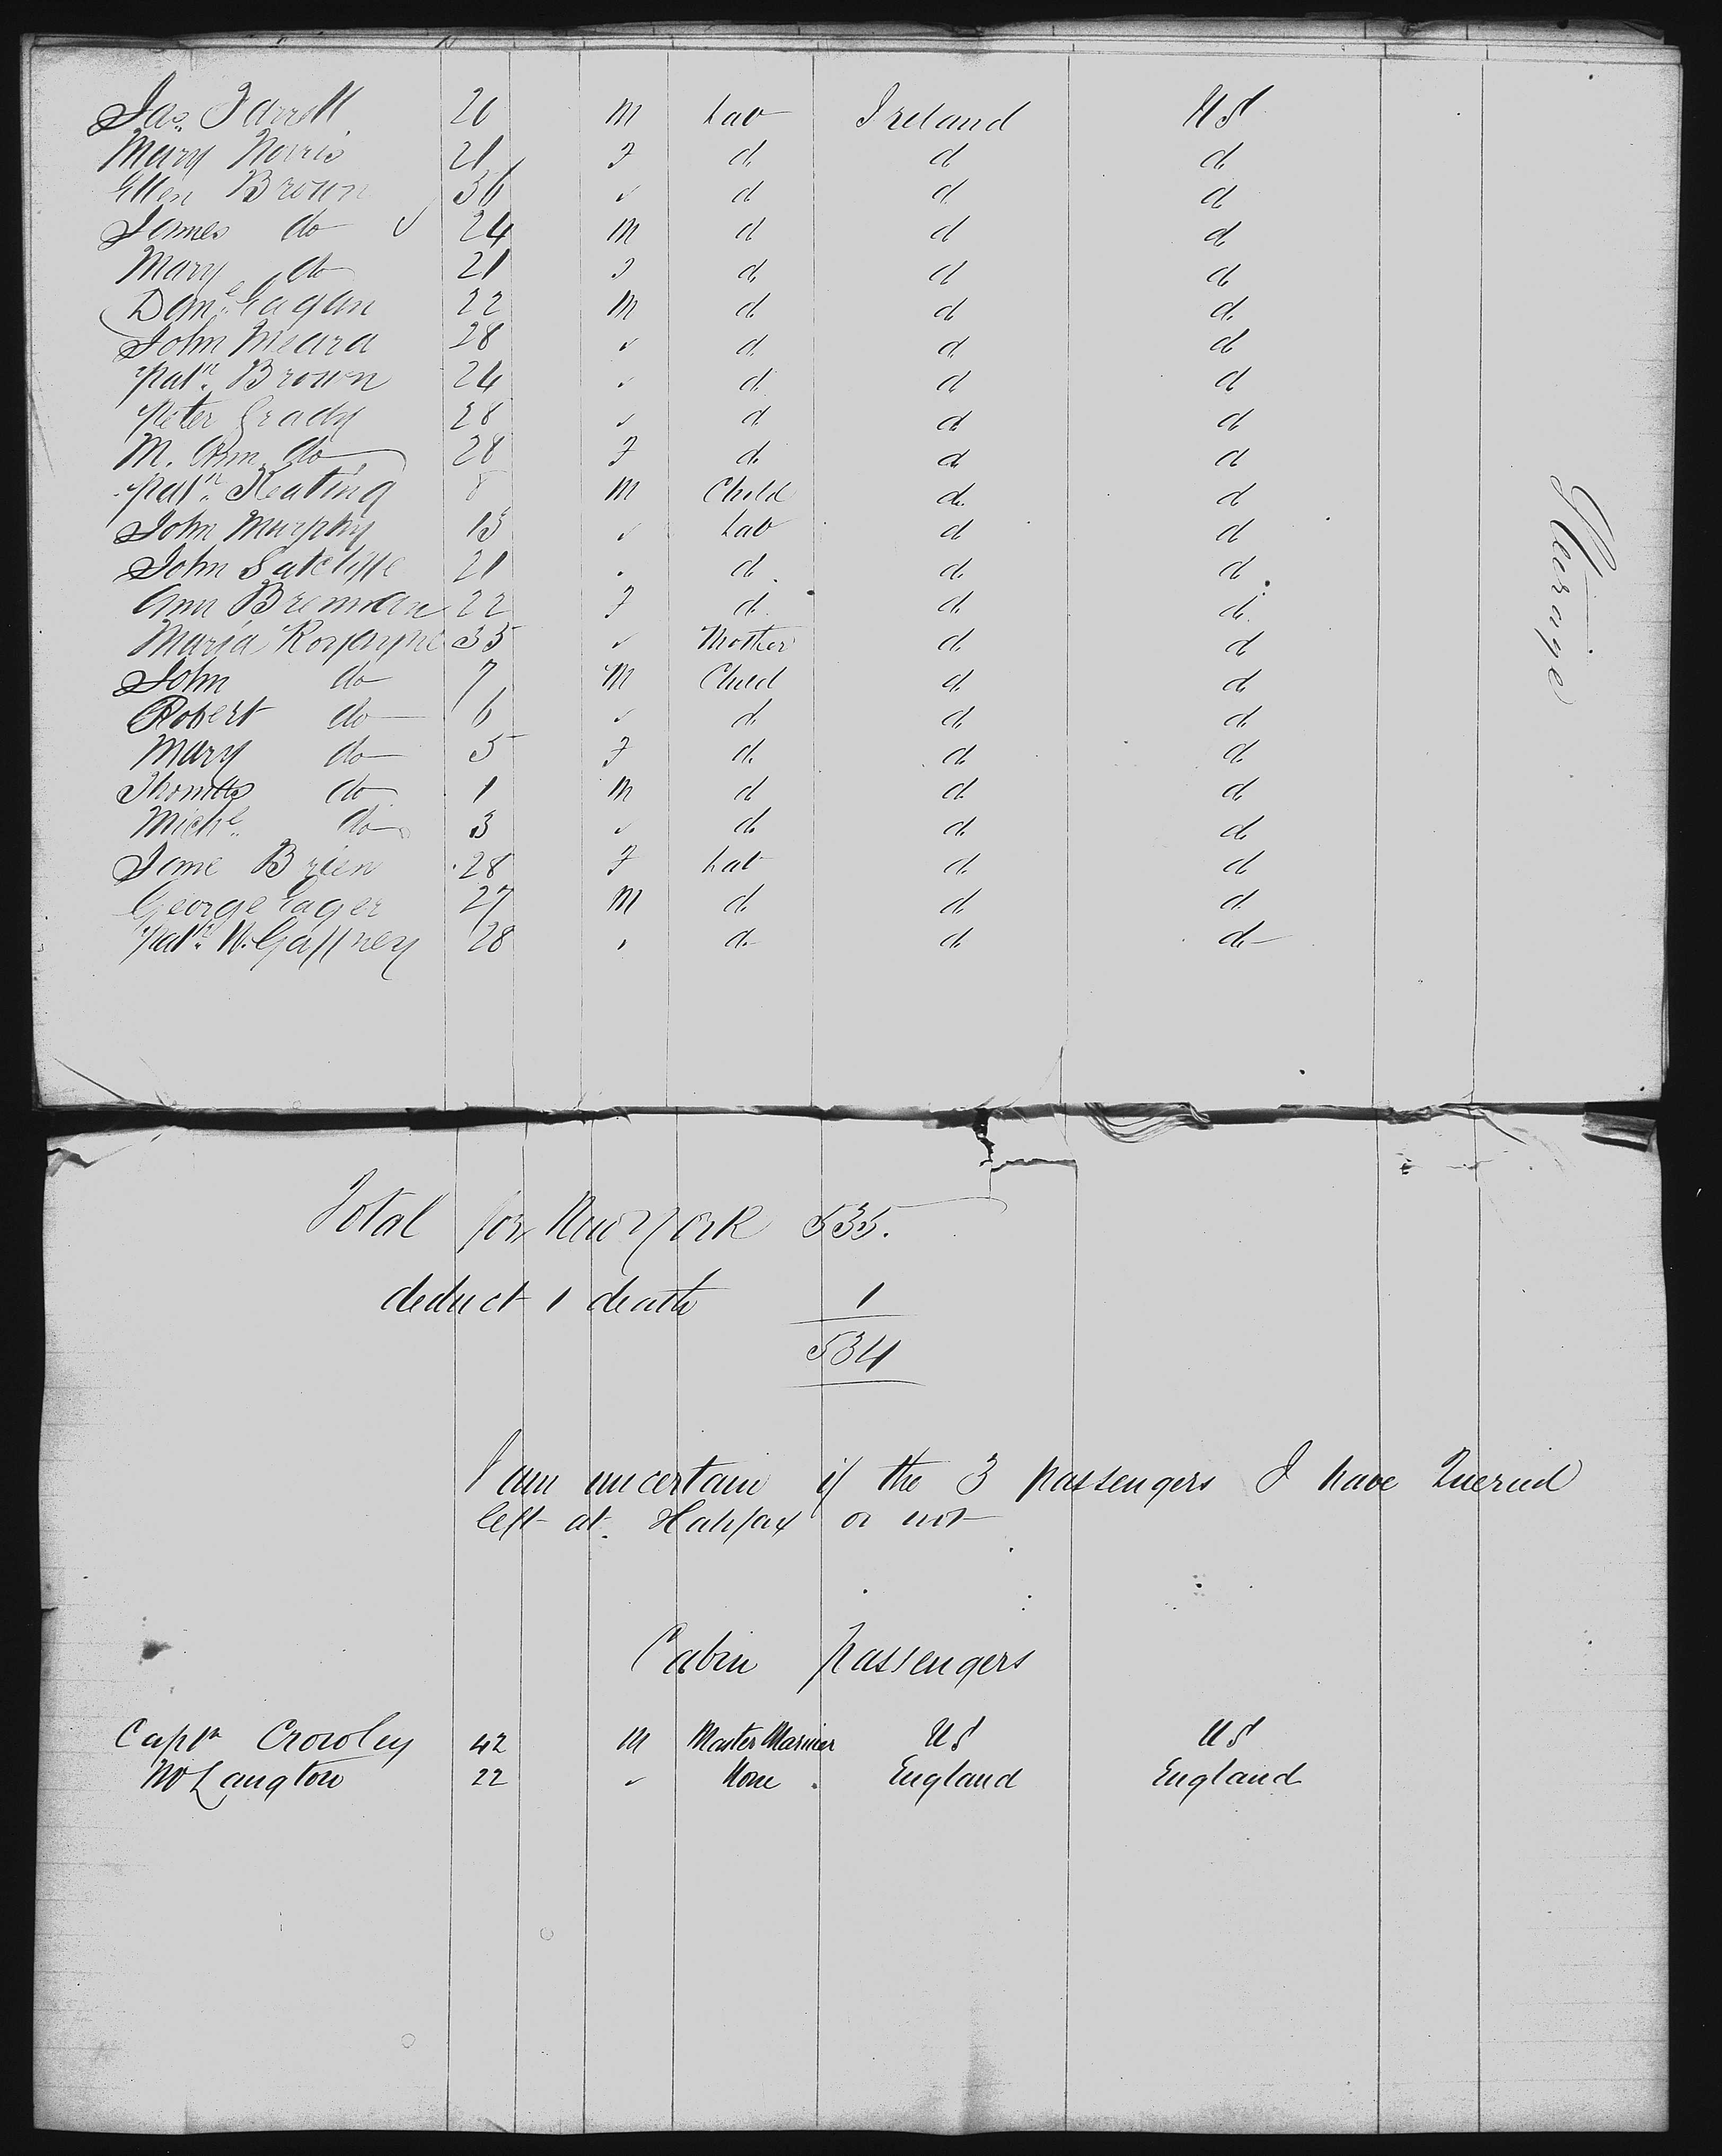 Jas. Farrell 20 M Lab Ireland US
Mary Norris 21 F d d d
Ellen Brown 36 " d d d
James do 24 M d d d
Mary do 21 F d d d
Danl. Eagan 22 M d d d
John Meara 28 " d d d
Patk. Brown 24 " d d d
Peter Grady 28 " d d d
M. Ann do 28 F d d d
Patk. Keating 8 M Child d d
John Murphy 15 " Lab d d
John Sutcliffe 21 " d d d
Ann Brennan 22 F d d d
Maria 35 " Mother d d
John do 7 M Child d d
Robert do 6 " d d d
Mary do 5 F d d d
Thomas do 1 M d d d
Michl. do 3 " d d d
Jane Brien 28 F Lab d d
George Eager 27 M d d d
Patk. McGaffney 28 " d d d
Steerage
Total for New York 535.
deduct 1 death 1
534
I am uncertain if the 3 passengers I have Queried
left at Halifax or not
Cabin Passengers
Captn Crowley 42 M Master Mariner US US
Langton 22 " None England England